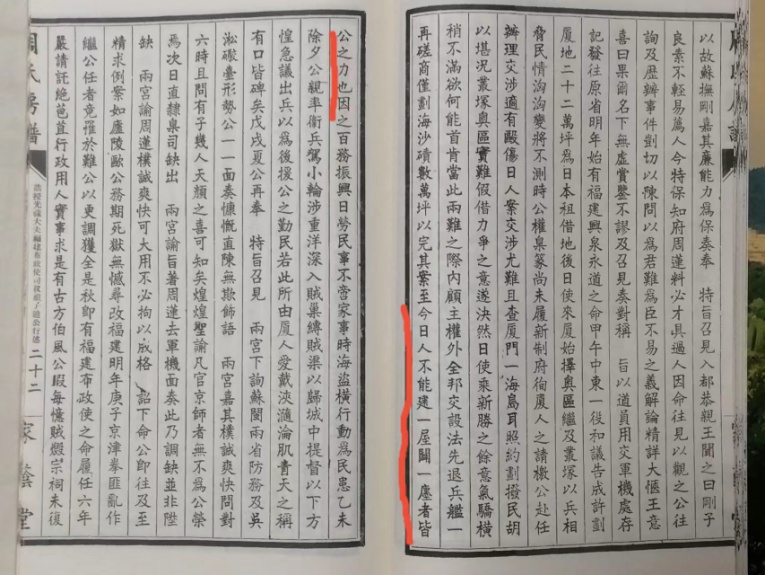 以故蘇撫剛嘉其廉能力為保奏奉　特旨召見入都恭親王聞之曰剛子
良素不輕易薦人今特保知府周蓮料必才具過人因命往見以觀之公往
詢及歷辦事件剴切以陳問以為君難為臣不易之義解論精詳大愜王意
喜曰果爾名下無虛賞鑒不謬及召見奏對稱　旨以道員用交軍機處存
記發往原省明年始有福建興泉永道之命甲午中東一役和議告成許劃
廈地二十二萬坪為日本租借地後日使來廈始擇奧區繼及叢塚以兵相
脅民情洶洶變將不測時公權臬篆尚未履新制府徇廈人之請檄公赴任
辦理交涉適有毆傷日人案交涉尤難且查廈門一海島耳照約劃撥民胡
以堪況叢塚奧區實難假借力爭之意遂決然日使乘新勝之餘意氣驕橫
稍不滿欲何能首肯當此兩難之際內顧主權外全邦交設法先退兵艦一
再磋商僅劃海沙磧數萬坪以完其案至今日人不能建一屋闢一廛者皆
公之力也因之百務振興日勞民事不啻家事時海盜橫行動為民患乙未
除夕公親率衛兵駕小輪涉重洋深入賊巢縛賊渠以歸城中提督以下方
惶急議出兵以為後援公之勤民若此所由廈人愛戴浹瀹淪肌青天之稱
有口皆碑矣戊戌夏公再奉　特旨召見　兩宮下詢蘇閩兩省防務及吳
淞礮臺形勢公一一面奏慷慨直陳無欺飾語　兩宮嘉其樸誠爽快問對
六時且問有子幾人天顏之喜可知矣煌煌聖諭凡官京師者無不為公榮
焉次日直隸臬司缺出　兩宮諭旨著周蓮去軍機面奏此乃調缺並非陞
缺　兩宮諭周蓮樸誠爽快可大用不必拘以成格　詔下命公即往及至
精求例案如廬陵歐公務期死獄無憾尋改福建明年庚子京津拳匪亂作
繼公任者竟罹於難公以更調獲全是秋即有福建布政使之命履任六年
嚴請託絕苞苴行政用人實事求是有古方伯風公暇每憶賊燬宗祠未復
周氏房譜
誥授光祿大夫福建布政使司布政使子迪公行述
二十二
家蔭堂